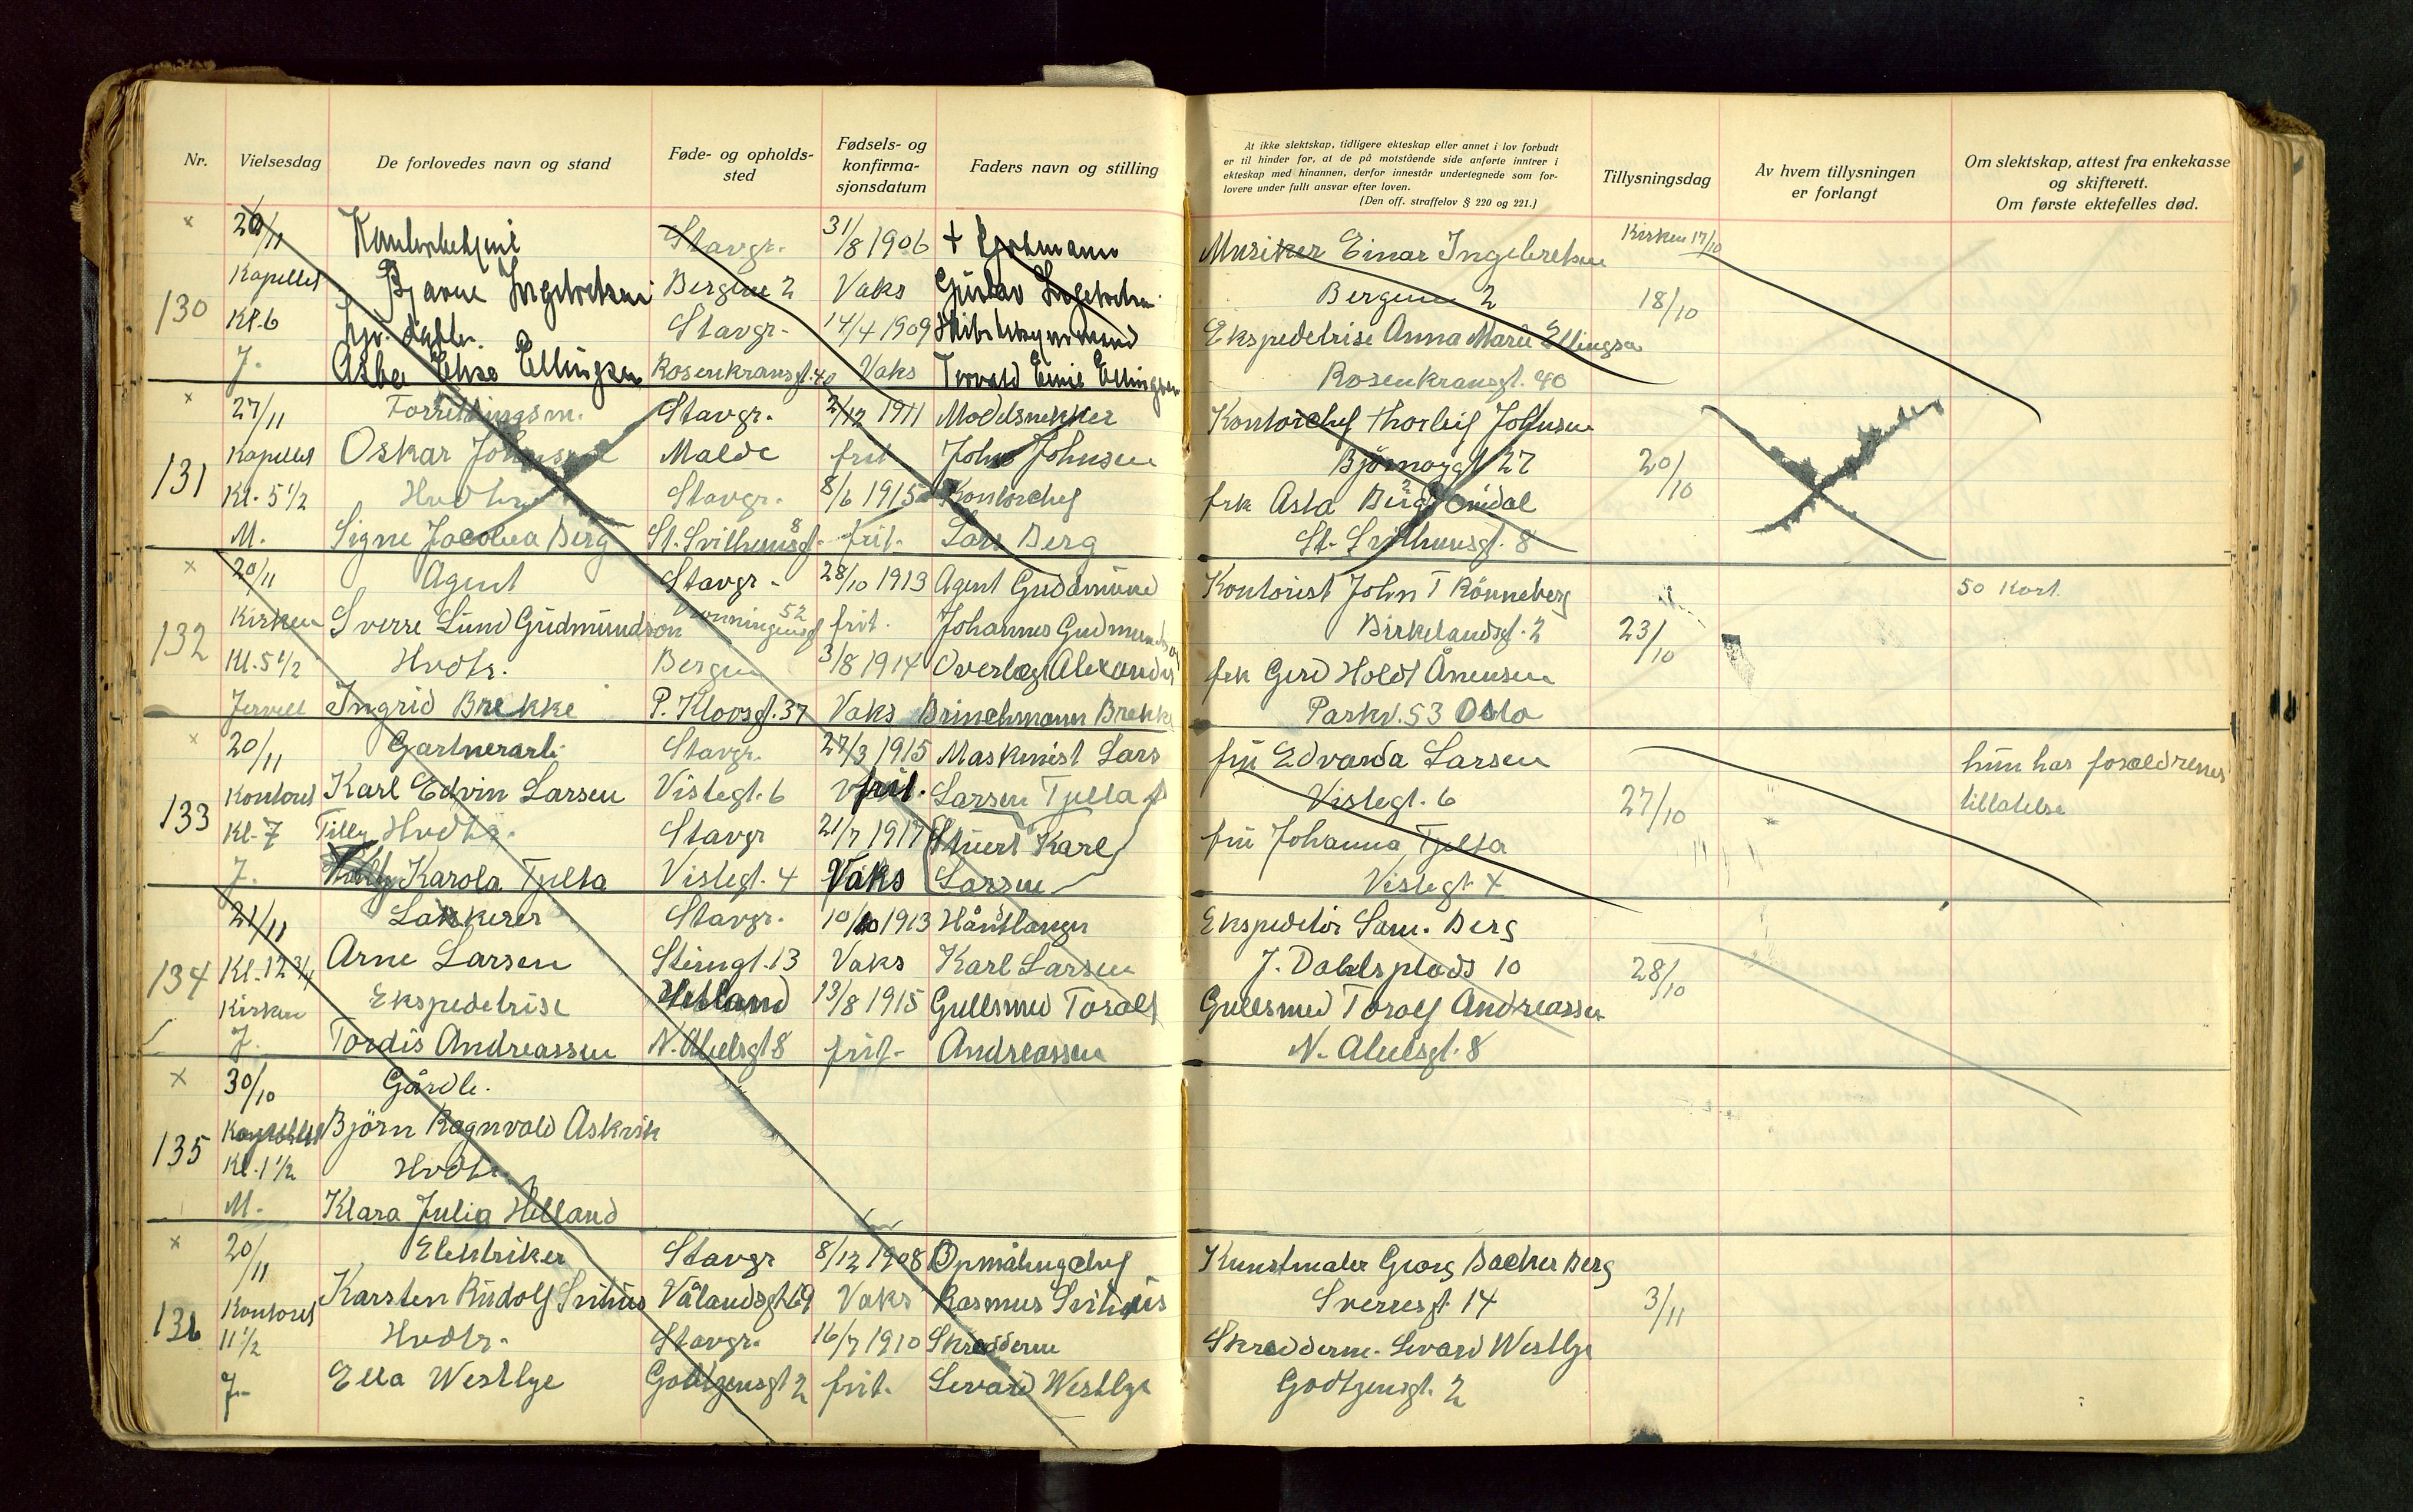 Nr.
Vielsesdag
De forlovedes navn og stand
Føde- og opholds-
sted
Fødsels- og
konfirma-
sjonsdatum
Faders navn og stilling
At ikke slektskap, tidligere ekteskap eller annet i lov forbudt
er til hinder for, at de på motstående side anførte inntrer i
ekteskap med hinannen, derfor innestår undertegnede som for-
lovere under fullt ansvar efter loven.
(Den off. straffelov § 220 og 221.)
Tillysningsdag
Av hvem tillysningen
er forlangt
Om slektskap, attest fra enkekasse
og skifterett.
Om første ektefelles død.
130
20/11
Kapellet
Kl. 6
J.
Kontorbetjent
Bjarne Ingebretsen
Ellingsen
Stavgr.
Bergene 2
Stavgr.
Rosenkransgt. 40
31/8 1906
Vaks
14/4 1909
Vaks
Gustav Ingebretsen
Torvald Emil Ellingsen
Musiker Einar Ingebretsen
Bergene 2
Ekspeditrise Anna Marie Ellingsen
Rosenkransgt. 40
Kirken 17/10
18/10
131
27/11
Kapellet
Kl. 5 1/2
M.
Forretningsm.
Oskar Johnsen
Hvdtr.
Signe Jacobea Berg
Stavgr.
Malde
Stavgr.
St. Svithunsgt. 8
2/12 1911
frit
8/6 1915
frit.
Modelsnekker
John Johnsen
Kontorchef
Lars Berg
Kontorchef Thorleif Johnsen
Bjørnøygt 27
frk Asta Berg
St. Svithunsgt. 8
20/10
132
20/11
Kirken
Kl. 5 1/2
Jervell
Agent
Sverre Lund Gudmundson
Hvdtr.
Ingrid Brekke
Stavgr.
52
Bergen
P. Klowsgt. 37
28/10 1913
frit.
3/8 1914
Vaks
Agent Gudmund
Johannes Gudmundson
Overlæge Alexander
Brinchmann Brekke
Kontorist John T Rönneberg
Birkelandsgt. 2
frk Gerd Holdt Ånensen
Parkv. 53 Oslo
23/10
50 kort.
133
20/11
Kontoret
Kl. 7
J.
Gartnerarb.
Karl Edvin Larsen
Tilly Hvdtr.
Karola Tjelta
Stavgr.
Vistegt. 6
Stavgr
Vistegt. 4
27/3 1915
frit.
21/7 1917
Vaks
Maskinist Lars
Larsen Tjelta
Stuert Karl
Larsen
fru Edvarda Larsen
Vistegt. 6
fru Johanna Tjelta
Vistegt 4
27/10
hun har forældrenes
tillatelse
134
21/11
Kl. 12 3/4
Kirken
J.
Lakkerer
Arne Larsen
Ekspeditrise
Tordis Andreassen
Stavgr.
Steingt. 13
Hetland
N. Abelsgt 8
10/10 1913
Vaks
13/8 1915
frit.
Håndlanger
Karl Larsen
Gullsmed Toralf
Andreassen
Ekspeditør Sam. Berg
J. Dahlsplads 10
Gullsmed Toralf Andreassen
N. Abelsgt. 8
28/10
135
30/10
Kapellet
Kl. 1 1/2
M.
Gårdb.
Björn Ragnvald Askvik
Hvdtr.
Klara Julia Helland
136
20/11
Kontoret
11 1/2
J.
Elektriker
Karsten Rudolf Svihus
Hvdtr.
Ella Westlye
Stavgr
Vålandsgt. 69
Stavgr.
Godtzensgt 2
8/12 1908
Vaks
16/7 1910
frit.
Opmålingchef
Rasmus Svihus
Skredderm
Sevard Westlye
Kunstmaler Georg Backer Berg
Sverresgt. 14
Skredderm. Sevard Westlye
Godtzensgt. 2
3/11